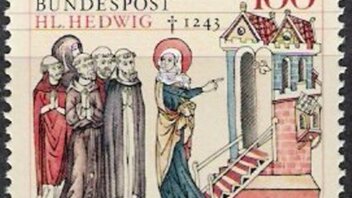 BUNDESPOST
HL. HEDWIG † 1243
100